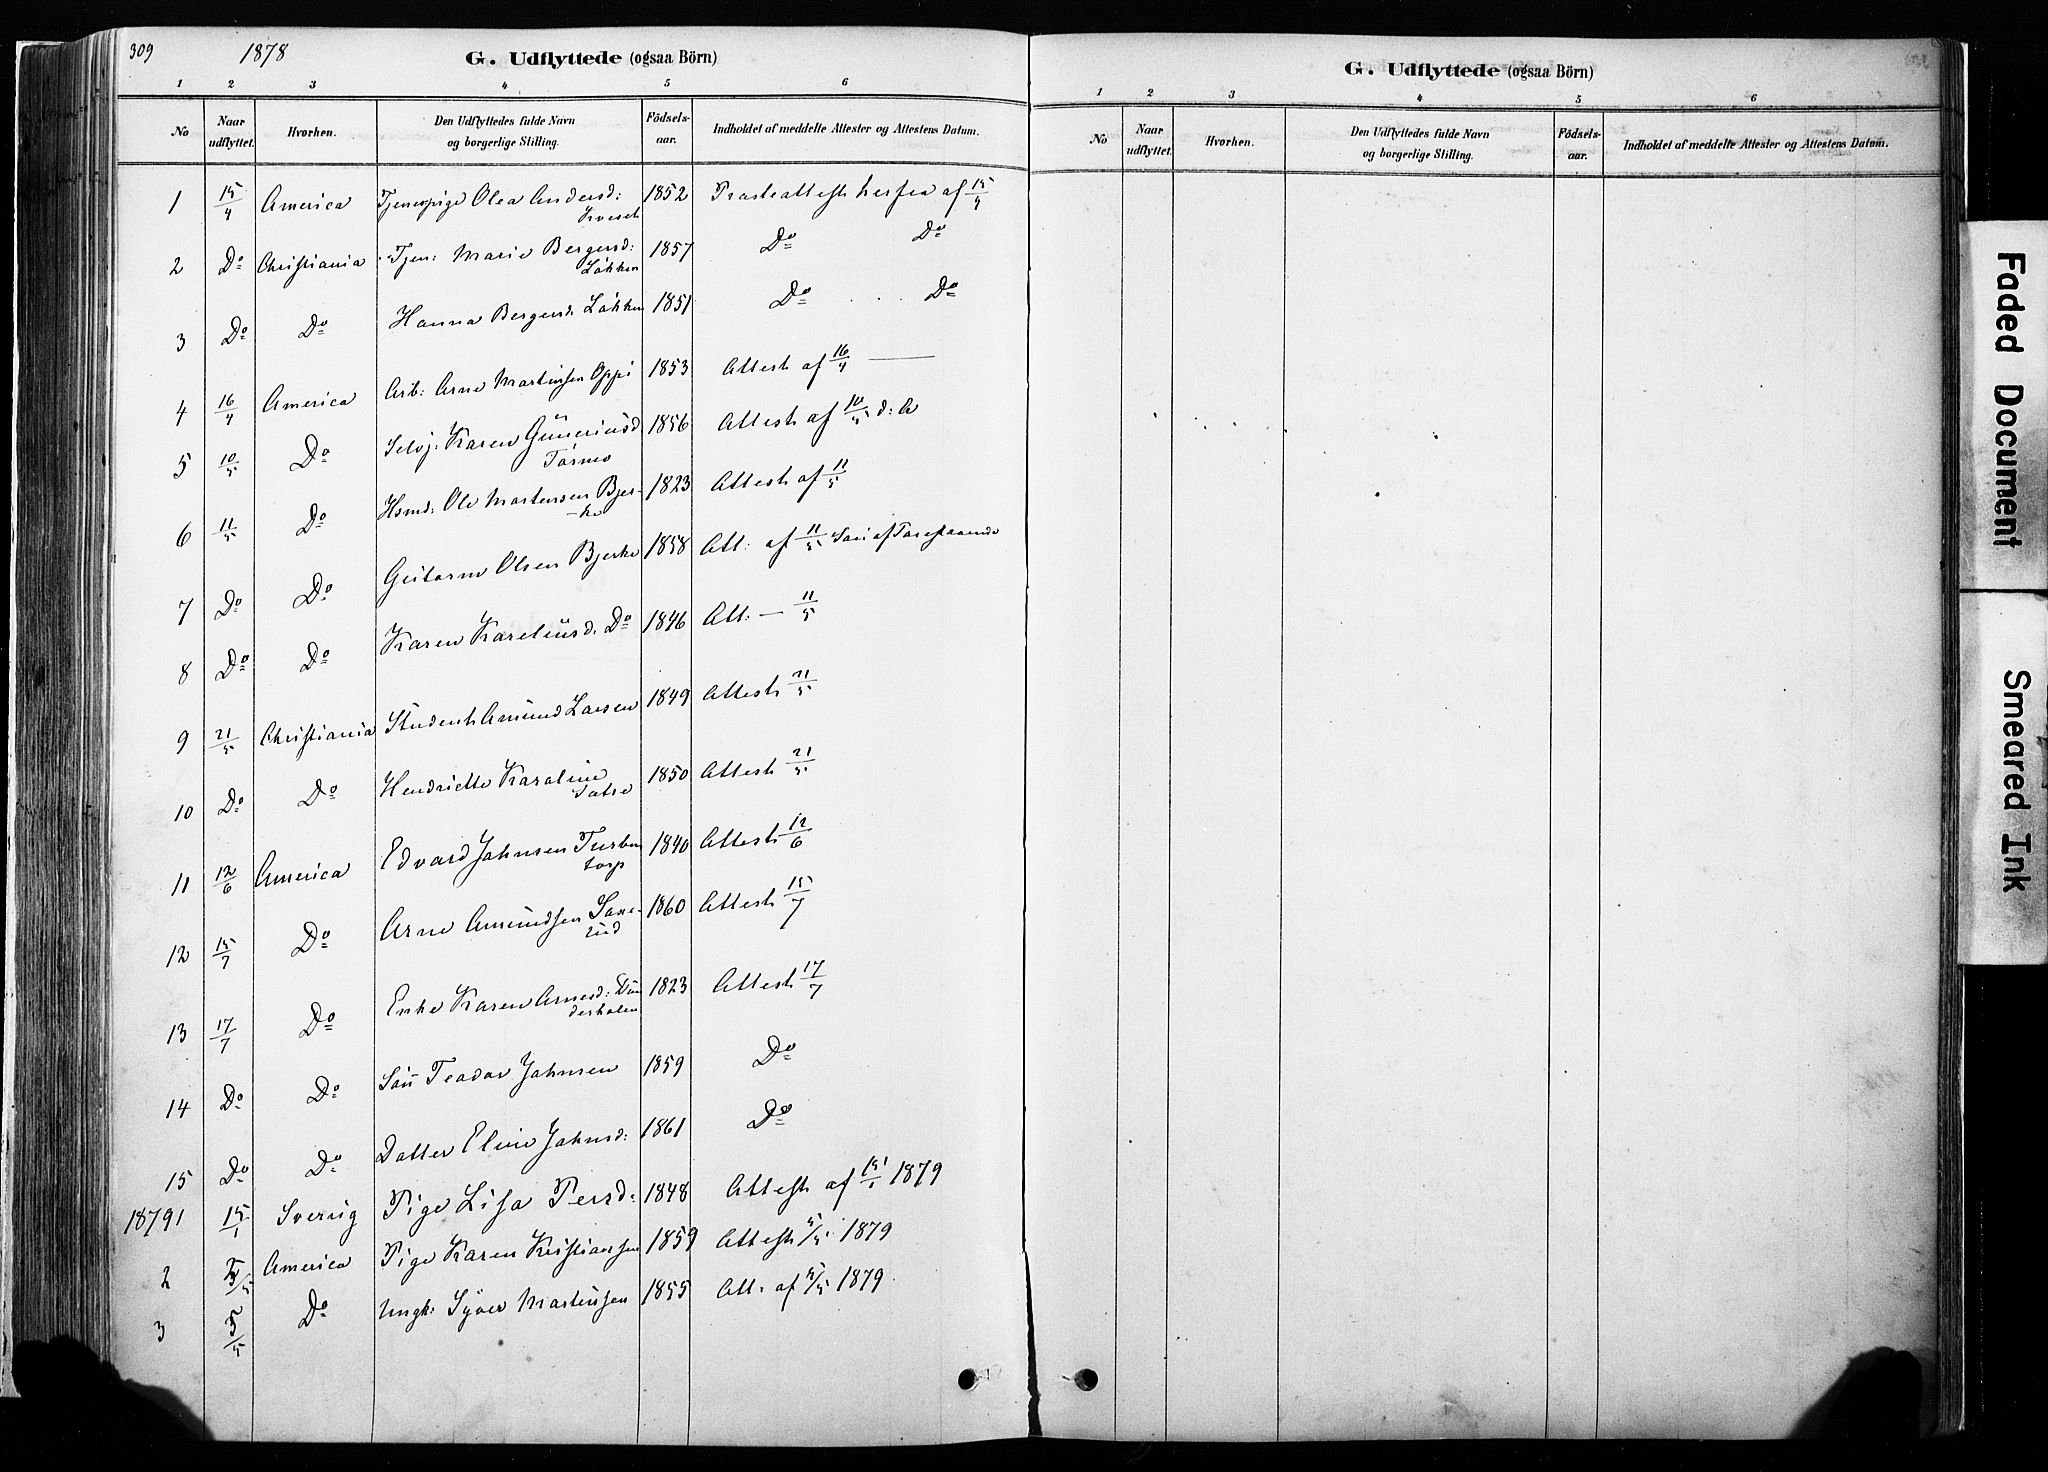 309 1878 G. Udflyttede (ogsaa Börn)
1 2 3 4 5 6
No Naar udflyttet. Hvorhen. Den Udflyttedes fulde Navn og borgerlige Stilling. Födsels-aar. Indholdet af meddelte Attester og Attestens Datum.
1 15/4 America Tjenespige Olea Andersd: 1852 Presteattest herfra af 15/4
2 Do Christiania Tjen: Marie Bergersd: Løkken 1857 Do Do
3 Do Do Hanna Bergersd. Løkken 1851 Do Do
4 16/4 America Arb: Arne Martinsen Oppi 1853 Attest af 16/4 —
5 10/5 Do Selvj: Karen Guneriusd 1856 Attest af 10/5 d: A
6 11/5 Do Hsmd: Ole Mortensen Bjer-ke 1823 Attest af 11/5
7 Do Do Gutorm Olsen Bjerke 1858 Att: af 11/5 Søn af Forestaaende
8 Do Do Karen Kareliusd. Do 1846 Att: — 11/5
9 21/5 Christiania Student Amund Larsen 1849 Attest 21/5
10 Do Do Hendriette Karoline 1850 Attest 21/5
11 12/6 America Edvard Johnsen 1840 Attest 12/6
12 15/7 Do Arne Amundsen 1860 Attest 15/7
13 17/7 Do Enke Karen Arnesd: 1823 Attest 17/7
14 Do Do Søn Teodor Johnsen 1859 Do
15 Do Do Datter Eline Johnsd: 1861 Do
1879 1 15/1 Sverrig Pige Lisa Persd: 1848 Attest af 15/1 1879
2 5/5 America Pige Karen Kristiansen 1859 Attest 5/5 1879
3 5/5 Do Ungk: Syver Martinsen 1855 Att. af 5/5 1879
G. Udflyttede (ogsaa Börn)
1 2 3 4 5 6
No Naar udflyttet. Hvorhen. Den Udflyttedes fulde Navn og borgerlige Stilling. Födsels-aar. Indholdet af meddelte Attester og Attestens Datum.
Faded Document
Smeared Ink